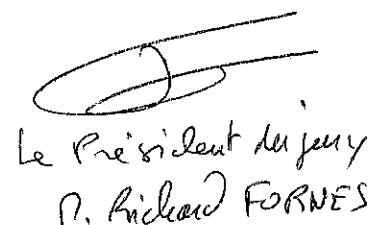 Le Président du jury
P. Richard FORNES